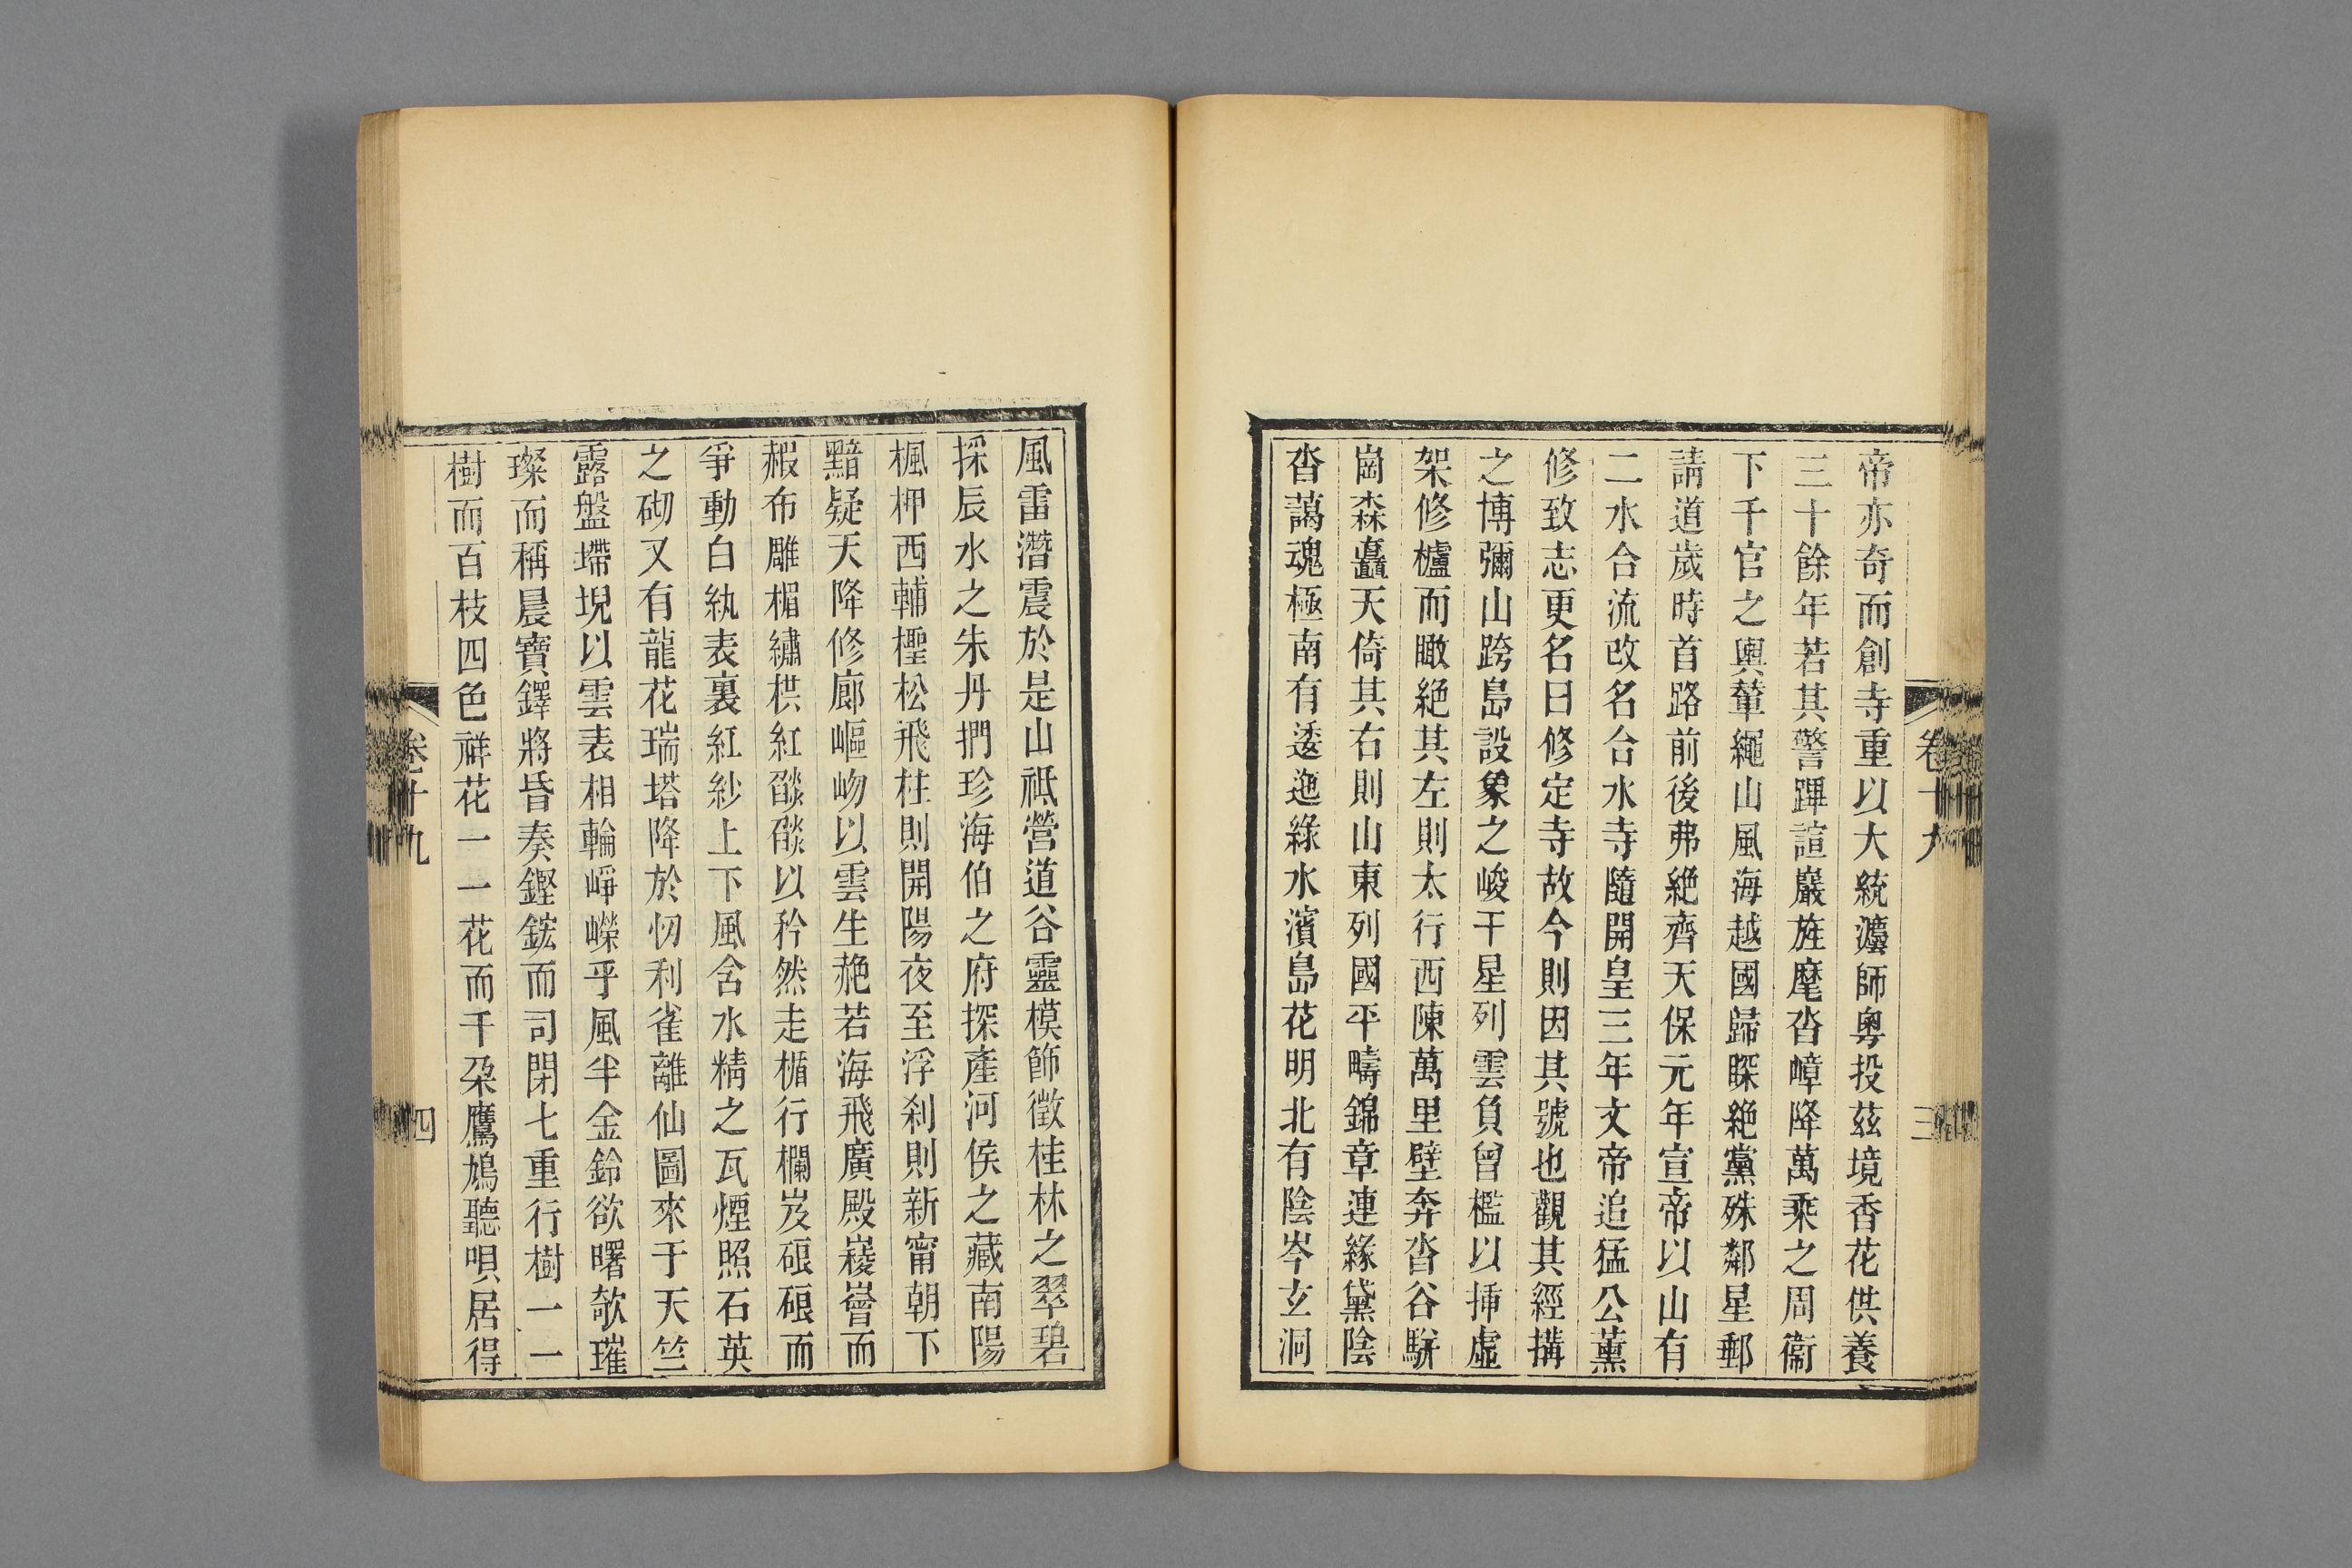 帝亦奇而創寺重以大統瀘師粵投茲境香花供養
三十餘年若其警蹕諠巖旌麾沓嶂降萬乘之周衞
下千官之輿輦繩山風海越國歸睬絕黨殊鄰星郵
請道歲時首路前後弗絕齊天保元年宣帝以山有
二水合流改名合水寺隨開皇三年文帝追猛公薰
修致志更名曰修定寺故今則因其號也觀其經搆
之博彌山跨島設象之峻干星列雲負曾檻以挿虛
架修櫨而瞰絕其左則太行西陳萬里壁奔沓谷駢
崗森矗天倚其右則山東列國平疇錦章連緣黛陰
沓藹魂極南有逶迤綠水濱島花明北有陰岑玄洞
卷十九
三
風雷潛震於是山祗營道谷靈模節徵桂林之翠碧
採辰水之朱丹捫珍海伯之府探產河侯之藏南陽
楓柙西輔檉松飛柱則開陽夜至浮刹則新甯朝下
黯疑天降修廊嶇岉以雲生赩若海飛廣殿崚嶒而
赮布雕楣繡栱紅以矜然走楯行欄岌硠硠而
爭動白紈表裏紅紗上下風含水精之瓦煙照石英
之砌又有龍花瑞塔降於忉利雀離仙圖來于天竺
露盤㙺堄以雲表相輪崢嶸乎風半金鈴欲曙欹璀
璨而稱晨寶鐸將昏奏鏗鋐而司閉七重行樹一一
樹而百枝四色祥花一一花而千朶鷹鳩聽唄居得
卷十九
四